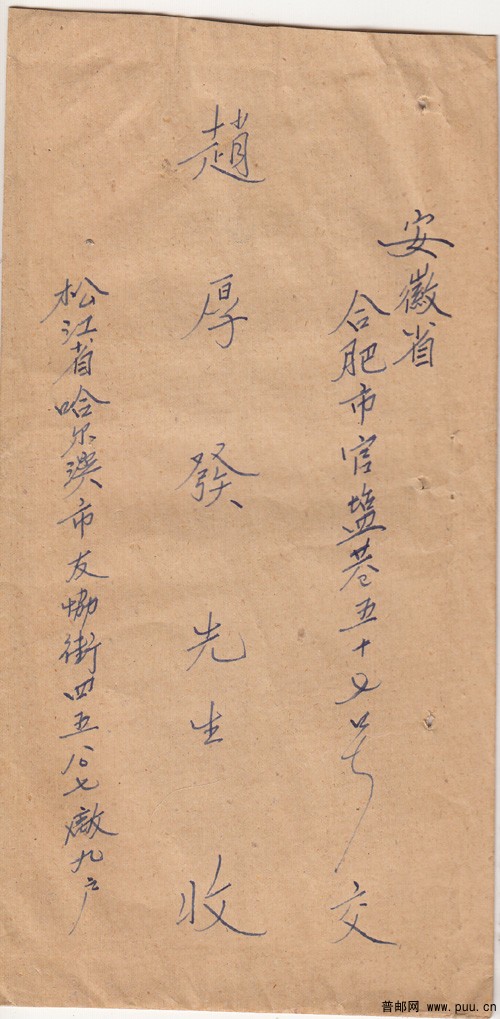 安徽省
合肥市官塩巷五十义号交
趙厚發先生收
松江省哈尔濱市友協街四五八七廠九户
普邮网 www.puu.cn